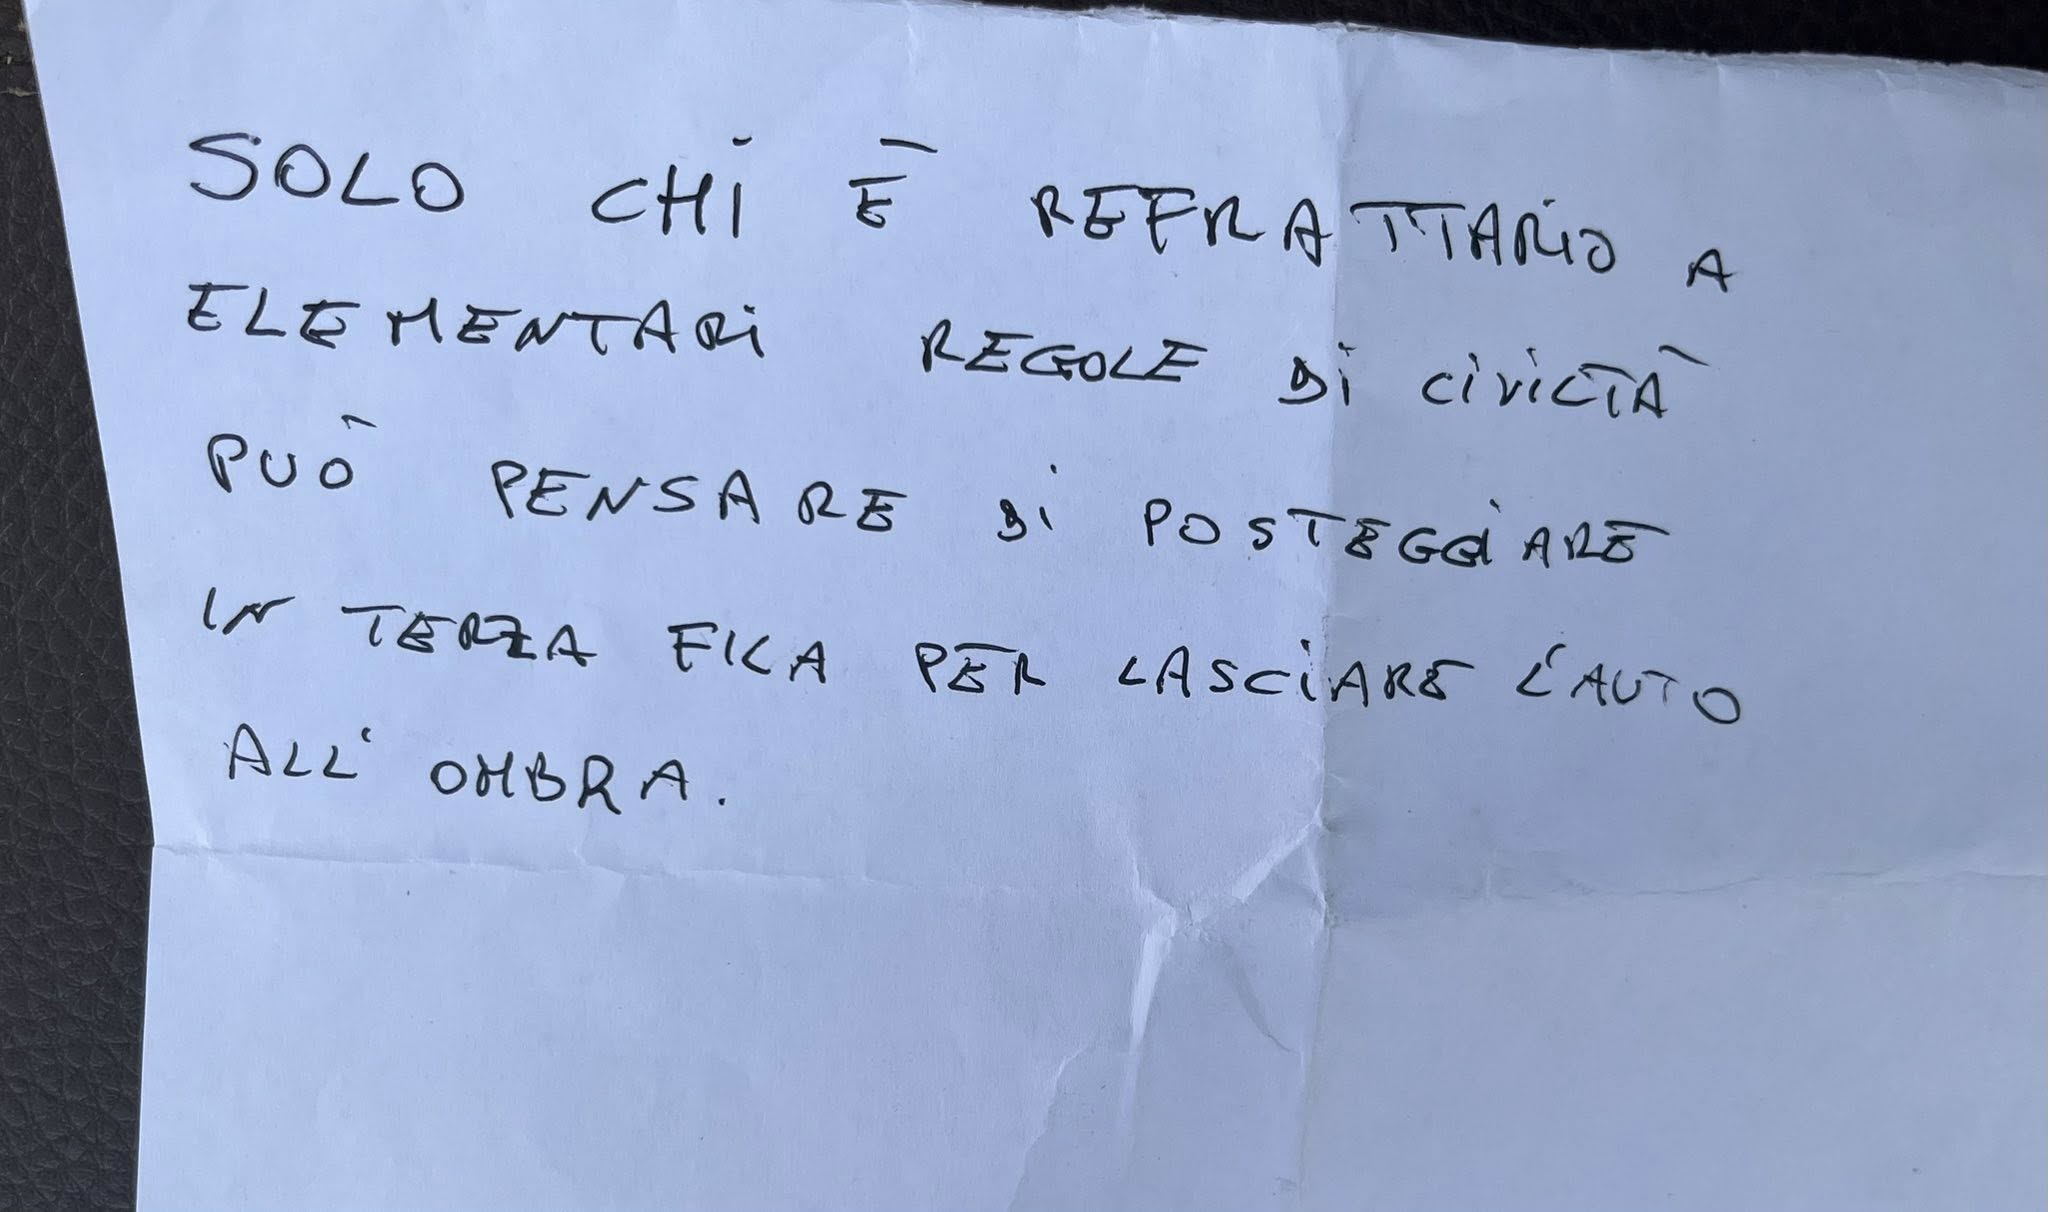 SOLO CHI È REFRATTARIO A
ELEMENTARI REGOLE DI CIVILTÀ
PUÒ PENSARE DI POSTEGGIARE
IN TERZA FILA PER LASCIARE L'AUTO
ALL'OMBRA.